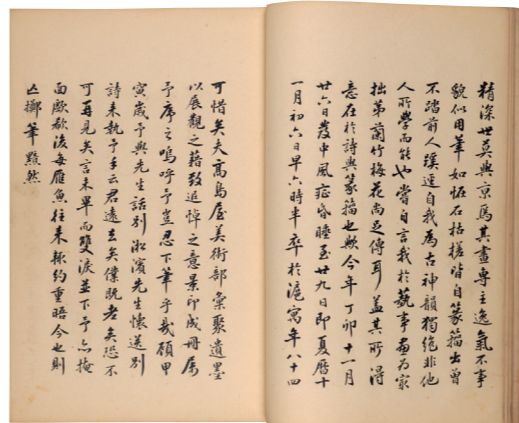 精深世莫與京焉其畫專主逸氣不事
貌似用筆如怪石枯槎皆自篆籀出曾
不踏前人蹊逕自我為古神韻獨絕非他
人所學而能也嘗自言我於藝事畫為最
拙第蘭竹梅花尚足傳耳蓋其所得
意在於詩與篆籀也歟今年丁卯十一月
廿六日發中風症昏睡至廿九日即夏曆十
一月初六日早六時半卒於滬寓年八十四
可惜矣夫高島屋美術部彙聚遺墨
以展觀之藉致追悼之意景印成冊属
予席之嗚呼予豈忍下筆乎哉顧甲
寅歲予與先生話別淞濱先生懷送別
詩来執予手云君遠去矣僕既老矣恐不
可再見矣言未畢而雙淚並下予亦掩
面歔欷後每雁魚往来輒約重晤今也則
亡擲筆黯然